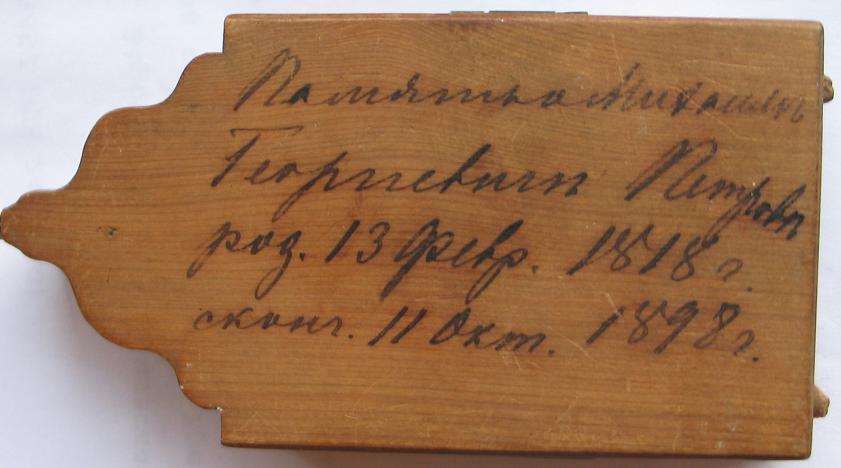 Память о Михаилъ
Георгиевичъ Петровъ
род. 13 февр. 1818 г.
сконч. 11 Окт. 1898 г.